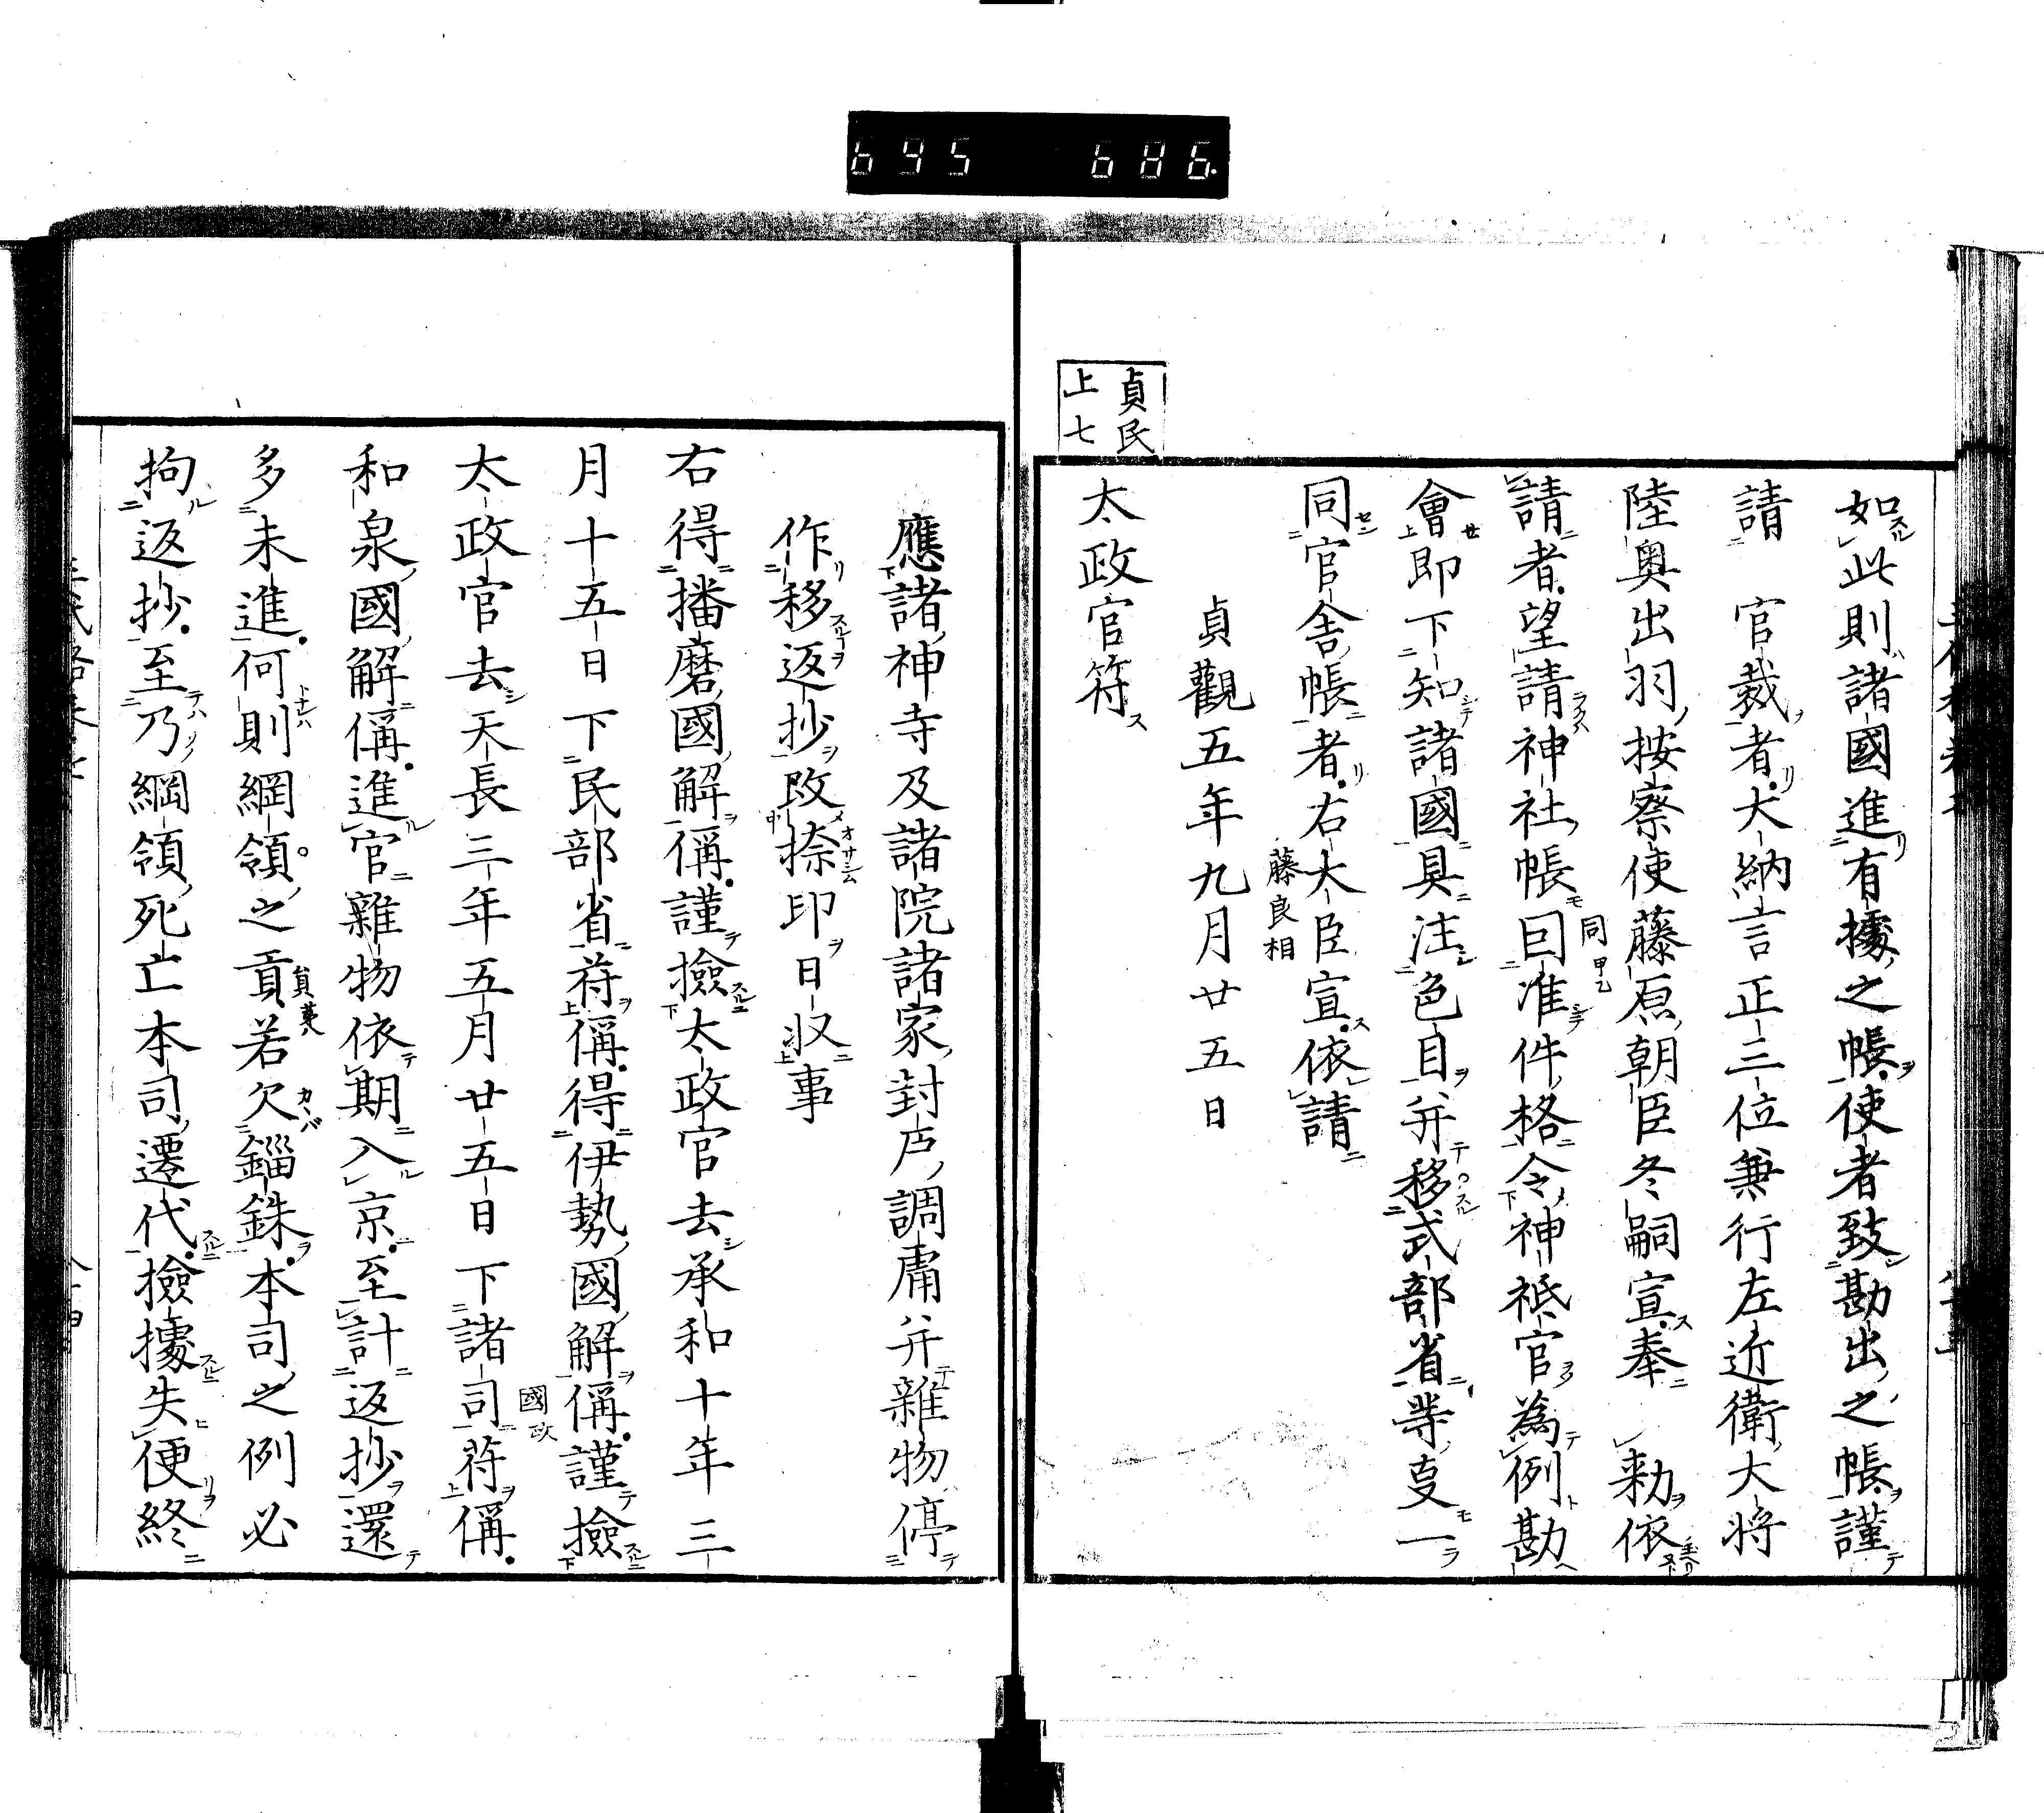 695 686
貞民
上七
如此則諸國進有據之帳使者致勘出之帳謹
請　官裁者大納言正三位兼行左近衛大将
陸奥出羽按察使藤原朝臣冬嗣宣奉　勅依
請者望請神社帳同准件格令神祇官為例勘
同甲乙
會即下知諸國具注色目并移式部省等亊一
同官舎帳者右大臣宣依請
藤良相
貞觀五年九月廿五日
太政官符
應諸神寺及諸院諸家封戸調庸并雜物停
作移返抄改捺印日収事
右得播磨國解偁謹撿太政官去承和十年三
月十五日下民部省符偁得伊勢國解偁謹撿
太政官去天長三年五月廿五日下諸司符偁
國欤
和泉國解偁進官雜物依期入京至計返抄還
多未進何則綱領之貢若欠錙銖本司之例必
拘返抄至乃綱領死亡本司遷代撿據失便終